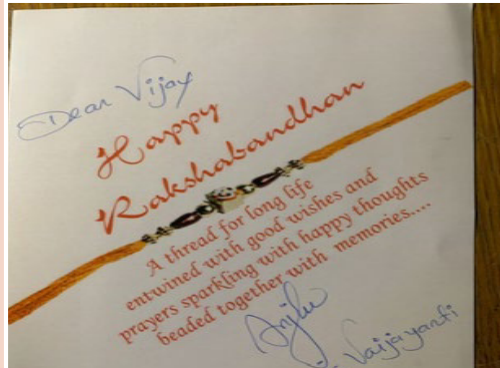 Dear Vijay
Happy
Rakshabandhan
A thread for long life
entwined with good wishes and
prayers sparkling with happy thoughts
beaded together with memories....
Vaijayanti